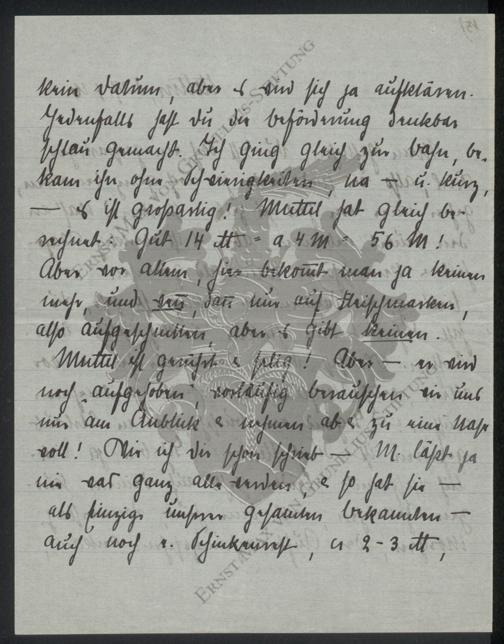 kein Datum, aber es wird sich ja aufklären.
Jedenfalls hast du die Beförderung denkbar
schlau gemacht. Ich ging gleich zur Bahn, be-
kam ihn ohne Schwierigkeiten, na — u. kurz,
— es ist großartig! Muttel hat gleich be-
rechnet: Gut 14 ℔ = a 4 M = 56 M!
Aber vor allem, hier bekomt man ja keinen
mehr, und wenn, dann nur auf Fleischmarken,
also aufgeschnitten, aber es gibt keinen.
Muttel ist gerührt & selig! Aber — er wird
noch aufgehoben, vorläufig berauschen wir uns
nur am Anblick & nehmen ab & zu eine Nase
voll! Wie ich dir schon schrieb — M. läßt ja
nie was ganz alle werden, & so hat sie —
als Einzige unserer gesamten Bekannten —
auch noch e. Schinkenrest, ca 2-3 ℔,
ERNST MAX VON GRUNELIUS-STIFTUNG
ERNST MAX VON GRUNELIUS-STIFTUNG